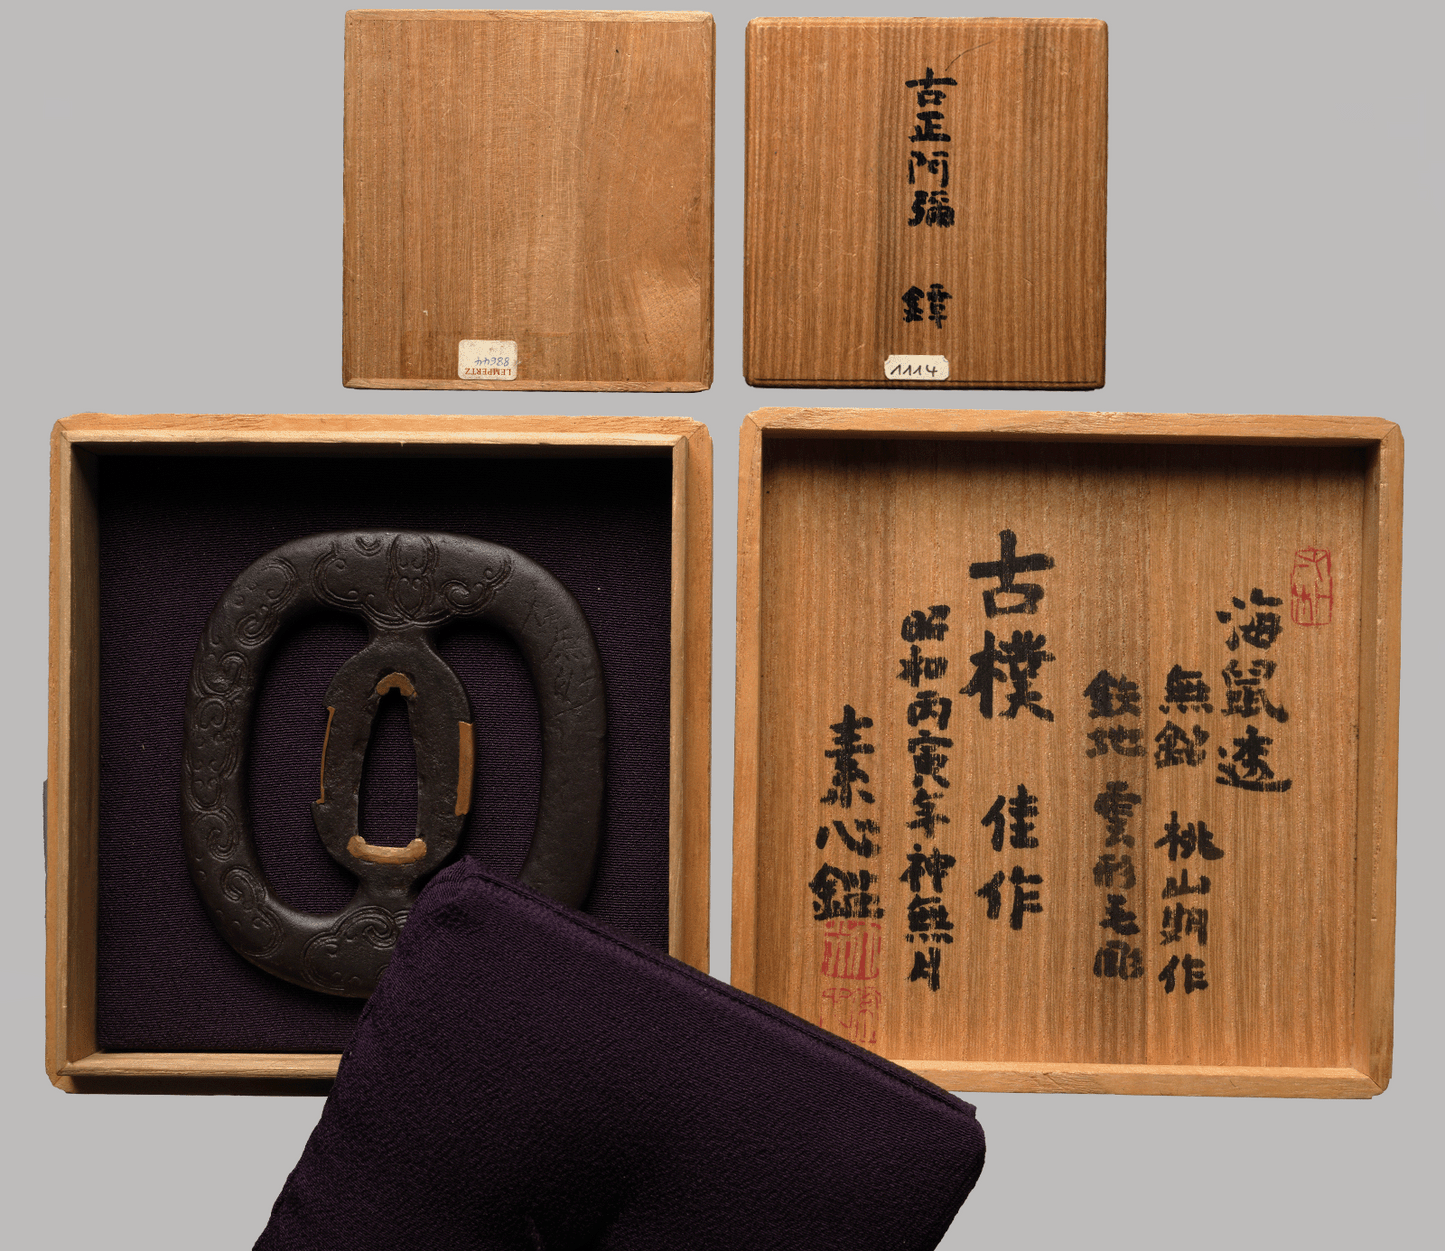 LEMPERTZ
88644
古正阿彌　鐔
1114
海鼠透
無銘　桃山期作
鉄地　雲形毛彫
古樸　佳作
昭和丙寅年神無月
素心鑑